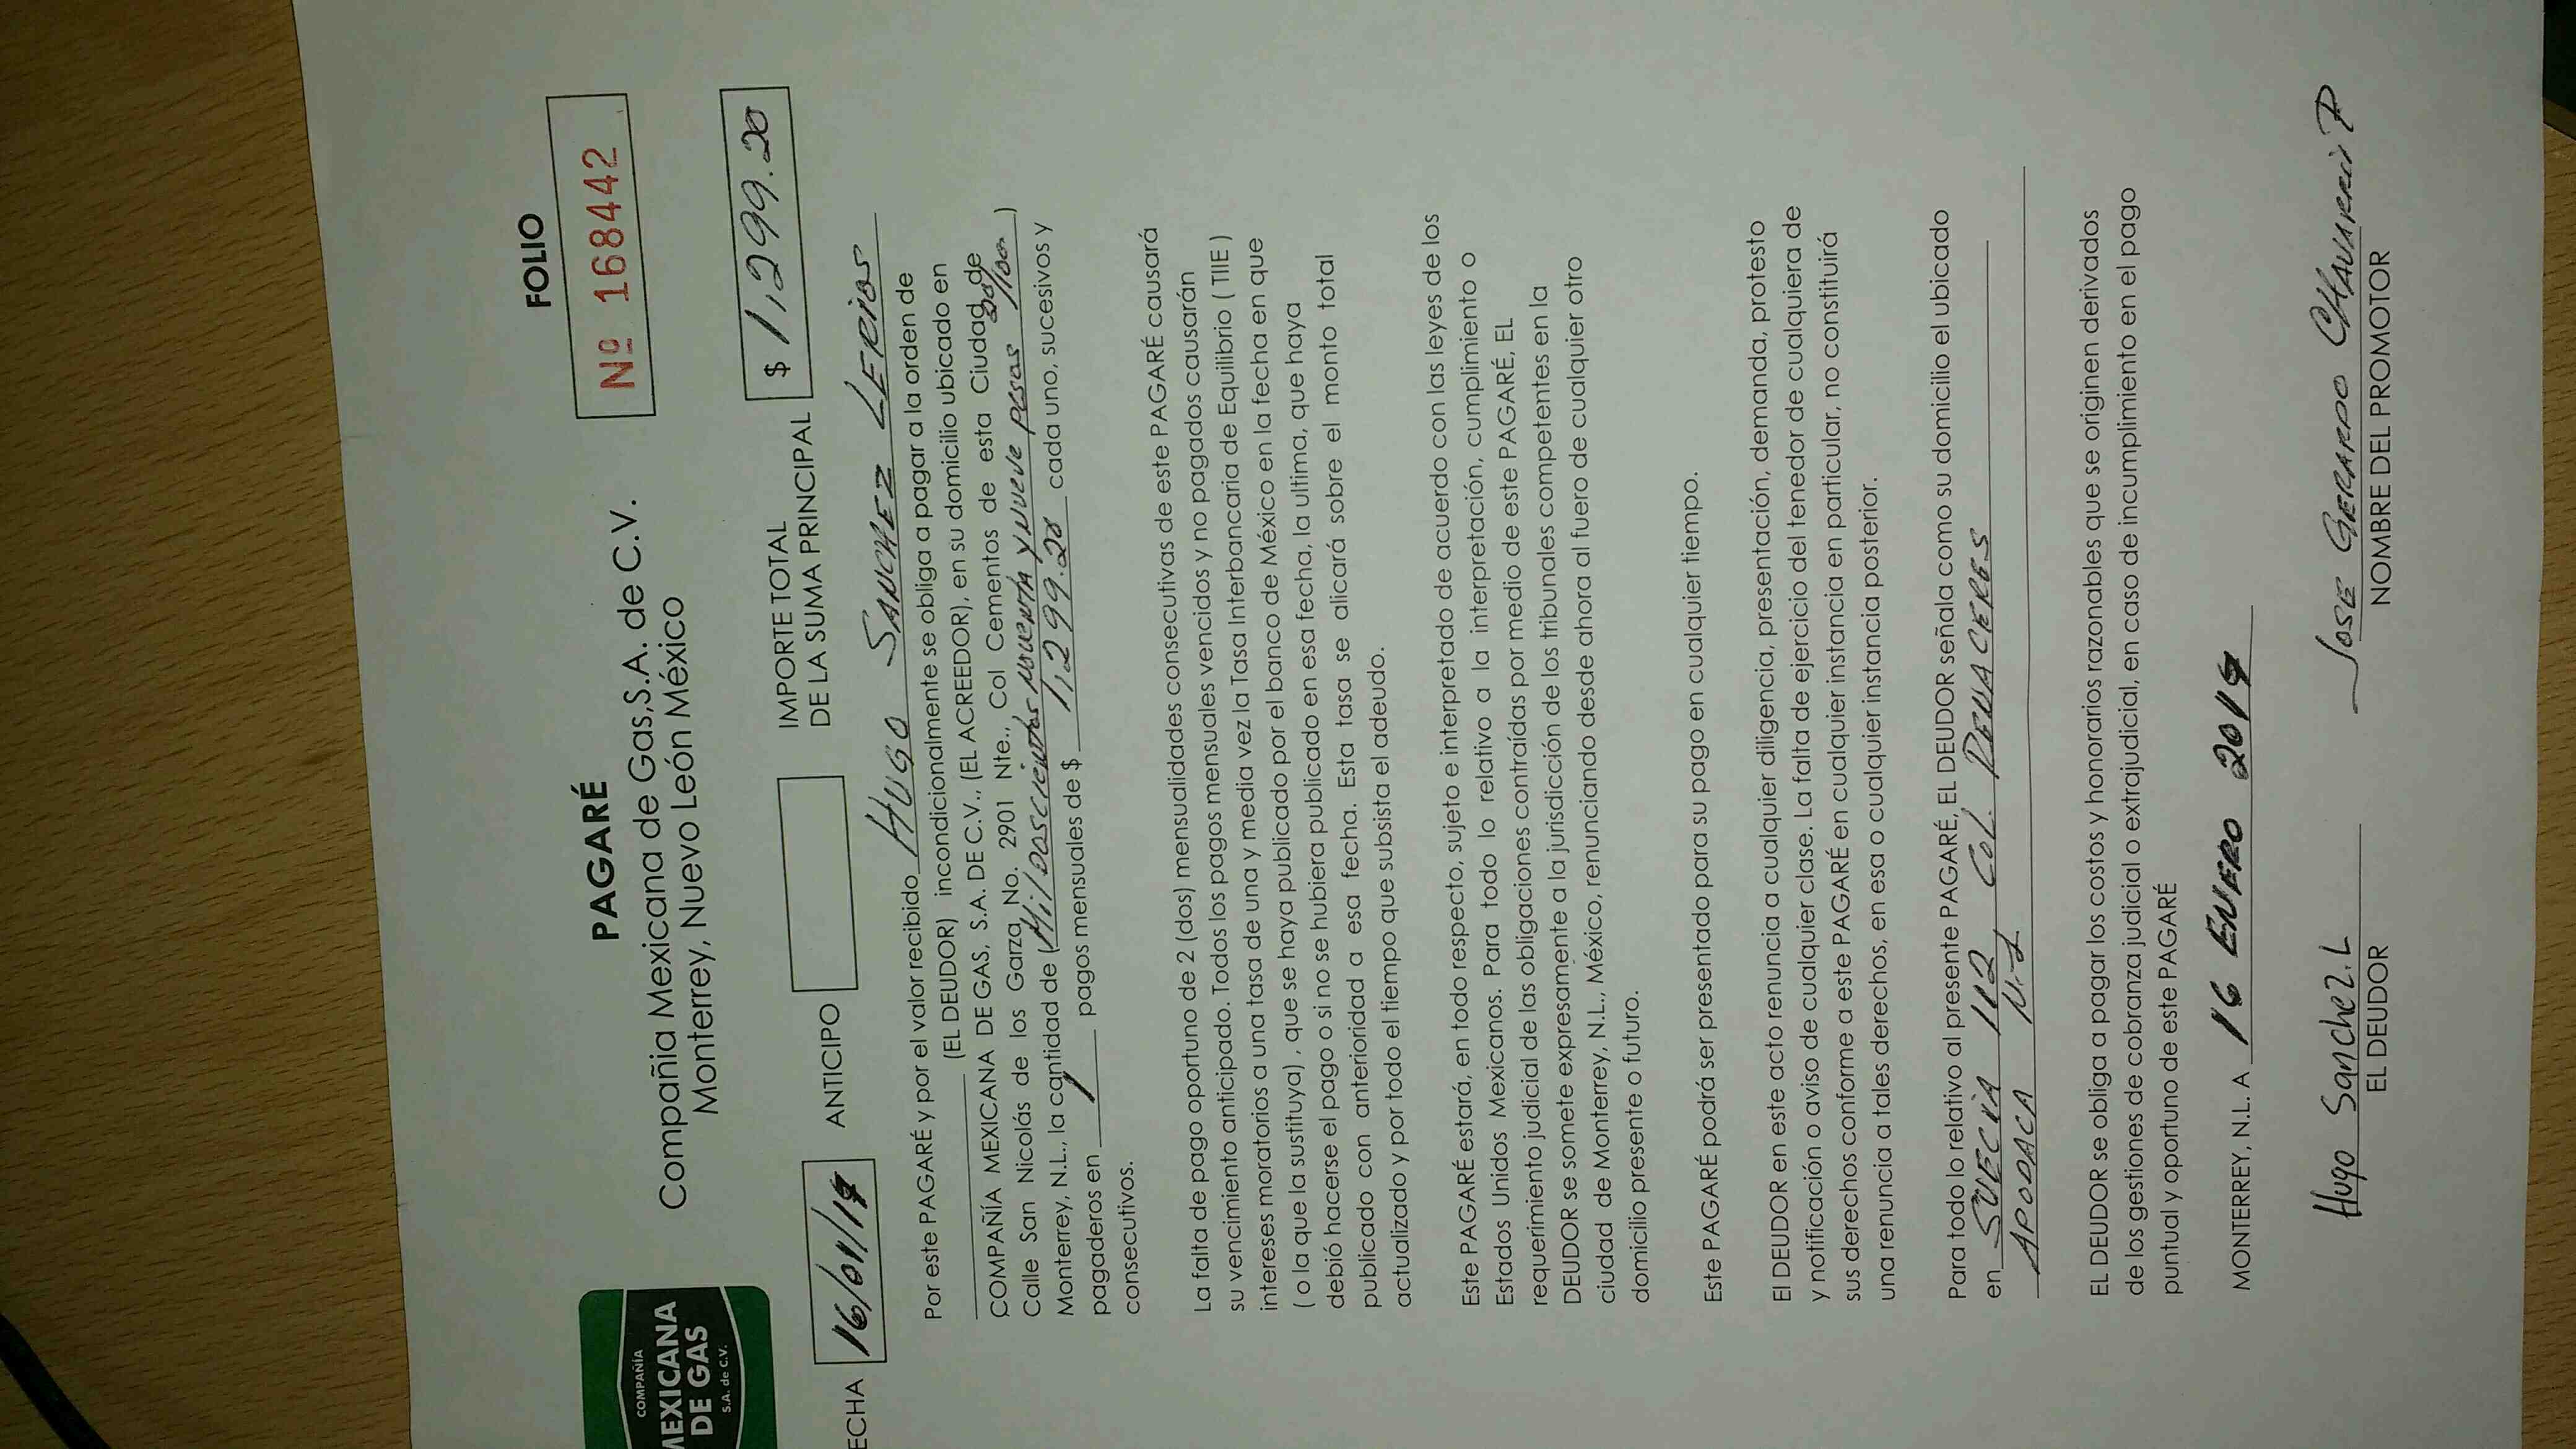 COMPAÑÍA
MEXICANA
DE GAS
S.A. de C.V.
PAGARÉ
Compañia Mexicana de Gas,S.A. de C.V.
Monterrey, Nuevo León México
FOLIO
Nº 168442
FECHA 16/01/19 ANTICIPO
IMPORTE TOTAL
DE LA SUMA PRINCIPAL $ 1,299.20
Por este PAGARÉ y por el valor recibido HUGO SANCHEZ LERIOS
(EL DEUDOR) incondicionalmente se obliga a pagar a la orden de
COMPAÑÍA MEXICANA DE GAS, S.A. DE C.V., (EL ACREEDOR), en su domicilio ubicado en
Calle San Nicolás de los Garza No. 2901 Nte., Col Cementos de esta Ciudad de
Monterrey, N.L., la cantidad de (Mil doscientos noventa y nueve pesos 20/100)
pagaderos en 1 pagos mensuales de $ 1,299.20 cada uno, sucesivos y
consecutivos.
La falta de pago oportuno de 2 (dos) mensualidades consecutivas de este PAGARÉ causará
su vencimiento anticipado. Todos los pagos mensuales vencidos y no pagados causarán
intereses moratorios a una tasa de una y media vez la Tasa Interbancaria de Equilibrio ( TIIE )
( o la que la sustituya) , que se haya publicado por el banco de México en la fecha en que
debió hacerse el pago o si no se hubiera publicado en esa fecha, la ultima, que haya
publicado con anterioridad a esa fecha. Esta tasa se alicará sobre el monto total
actualizado y por todo el tiempo que subsista el adeudo.
Este PAGARÉ estará, en todo respecto, sujeto e interpretado de acuerdo con las leyes de los
Estados Unidos Mexicanos. Para todo lo relativo a la interpretación, cumplimiento o
requerimiento judicial de las obligaciones contraídas por medio de este PAGARÉ, EL
DEUDOR se somete expresamente a la jurisdicción de los tribunales competentes en la
ciudad de Monterrey, N.L., México, renunciando desde ahora al fuero de cualquier otro
domicilio presente o futuro.
Este PAGARÉ podrá ser presentado para su pago en cualquier tiempo.
El DEUDOR en este acto renuncia a cualquier diligencia, presentación, demanda, protesto
y notificación o aviso de cualquier clase. La falta de ejercicio del tenedor de cualquiera de
sus derechos conforme a este PAGARÉ en cualquier instancia en particular, no constituirá
una renuncia a tales derechos, en esa o cualquier instancia posterior.
Para todo lo relativo al presente PAGARÉ, EL DEUDOR señala como su domicilio el ubicado
en SUECIA 112 COL. PENACERES
APODACA N.L
EL DEUDOR se obliga a pagar los costos y honorarios razonables que se originen derivados
de los gestiones de cobranza judicial o extrajudicial, en caso de incumplimiento en el pago
puntual y oportuno de este PAGARÉ
MONTERREY, N.L. A 16 ENERO 2019
Hugo Sanchez.L
EL DEUDOR
JOSE GERARDO CHAVARRIA P
NOMBRE DEL PROMOTOR